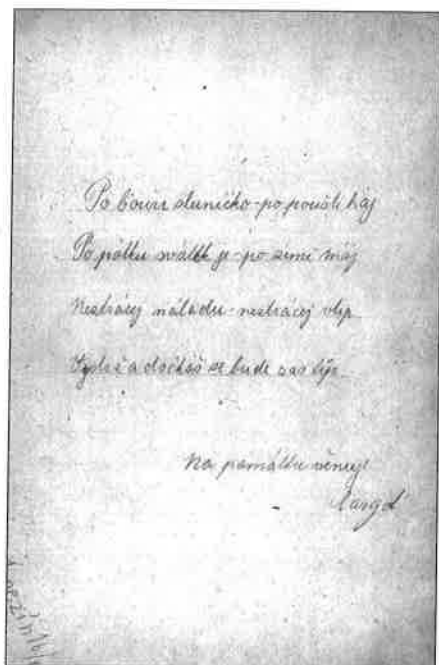 Po bouři sluníčko-po poušti háj
Po pátku svátek je-po zimě máj
Neztrácej náladu-neztrácej vtip
Vydrž a dočkáš se bude zas líp.
Na památku věnuje